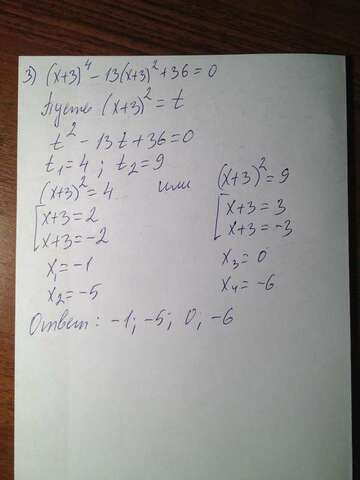 3) (x+3)⁴ - 13(x+3)² + 36 = 0
Пусть (x+3)² = t
t² - 13t + 36 = 0
t₁ = 4 ; t₂ = 9
(x+3)² = 4 или (x+3)² = 9
[ x+3 = 2 [ x+3 = 3
x+3 = -2 x+3 = -3
x₁ = -1 x₃ = 0
x₂ = -5 x₄ = -6
Ответ: -1; -5; 0, -6